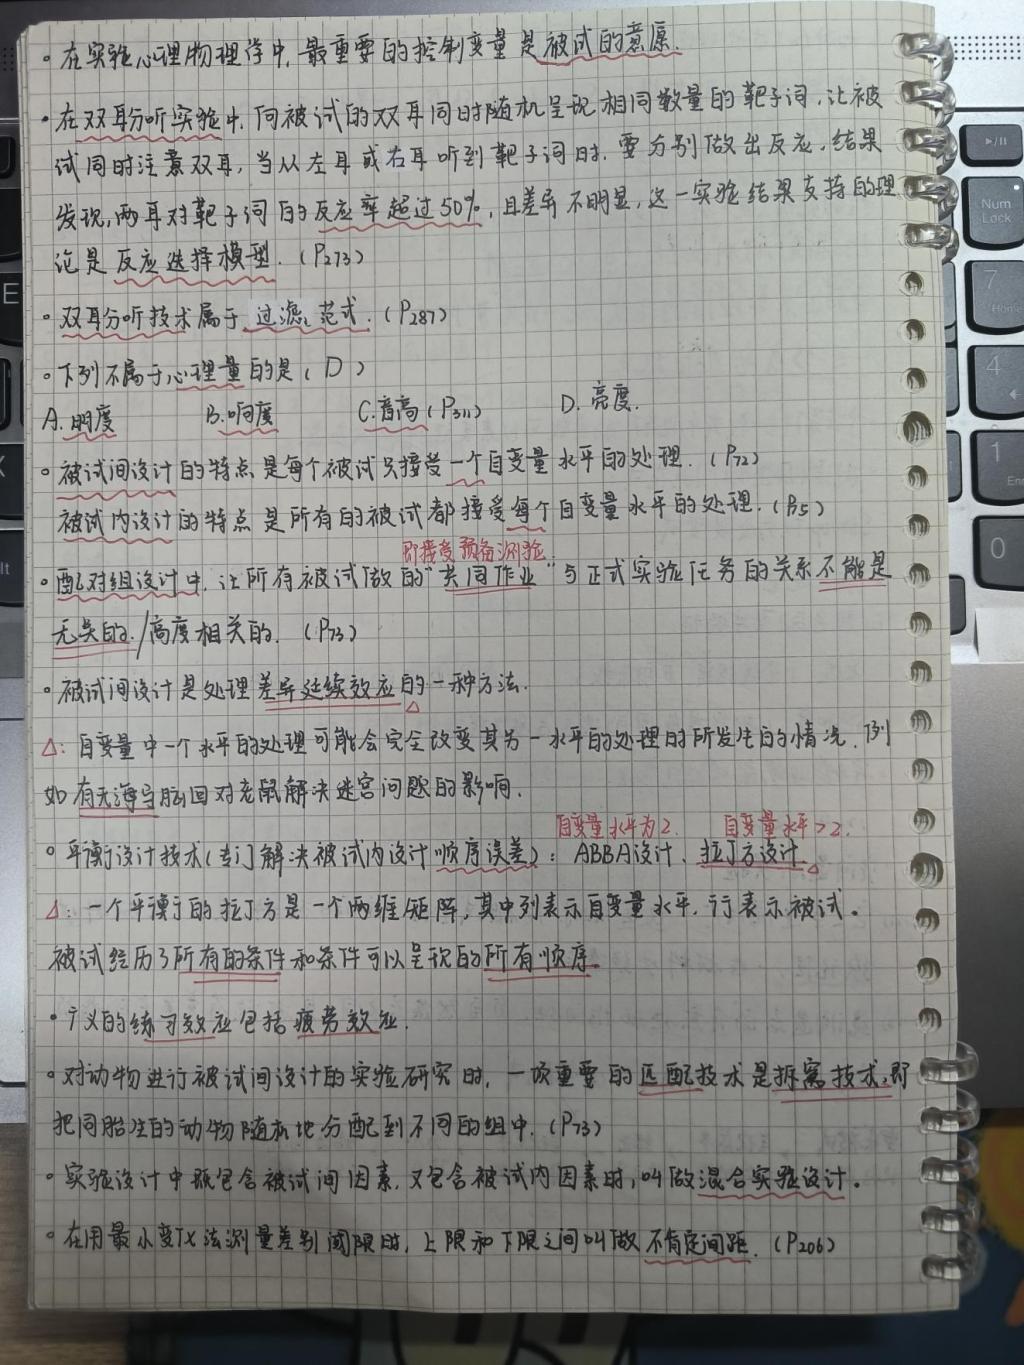 。在实验心理物理学中,最重要的控制变量是被试的意愿.
·在双耳分听实验中,向被试的双耳同时随机呈现相同数量的靶子词,让被
试同时注意双耳,当从左耳或右耳听到靶子词时,要分别做出反应,结果
发现,两耳对靶子词的反应率超过50%,且差异不明显,这一实验结果支持的理
论是反应选择模型.(P273)
·双耳分听技术属于过滤范式.(P287)
·下列不属于心理量的是(D)
A.明度 B.响度 C.音高(P311) D.亮度.
。被试间设计的特点是每个被试只接受一个自变量水平的处理.(P72)
被试内设计的特点是所有的被试都接受每个自变量水平的处理.(P75)
即接受预备测验
·配对组设计中,让所有被试做的"共同作业"与正式实验任务的关系不能是
无关的./高度相关的.(P73)
·被试间设计是处理差异延续效应的一种方法.
△
△:自变量中一个水平的处理可能会完全改变其另一水平的处理时所发生的情况.例
如有无海马脑回对老鼠解决迷宫问题的影响.
自变量水平为2. 自变量水平>2.
。平衡设计技术(专门解决被试内设计顺序误差):ABBA设计、拉丁方设计
△
△:一个平衡的拉丁方是一个两维矩阵,其中列表示自变量水平,行表示被试。
被试经历了所有的条件和条件可以呈现的所有顺序。
·广义的练习效应包括疲劳效应.
。对动物进行被试间设计的实验研究时,一项重要的匹配技术是拆窝技术,即
把同胎生的动物随机地分配到不同的组中.(P73)
·实验设计中既包含被试间因素,又包含被试内因素时,叫做混合实验设计。
。在用最小变化法测量差别阈限时,上限和下限之间叫做不肯定间距.(P206)
Num
Lock
7
Home
4
1
0
E
X